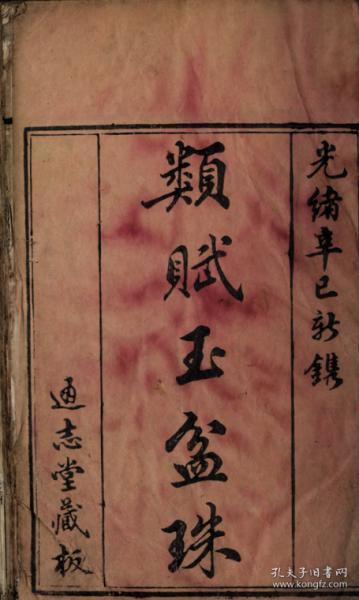 光緒辛巳新鐫
類賦玉盆珠
通志堂藏板
孔夫子旧书网
www.kongfz.com